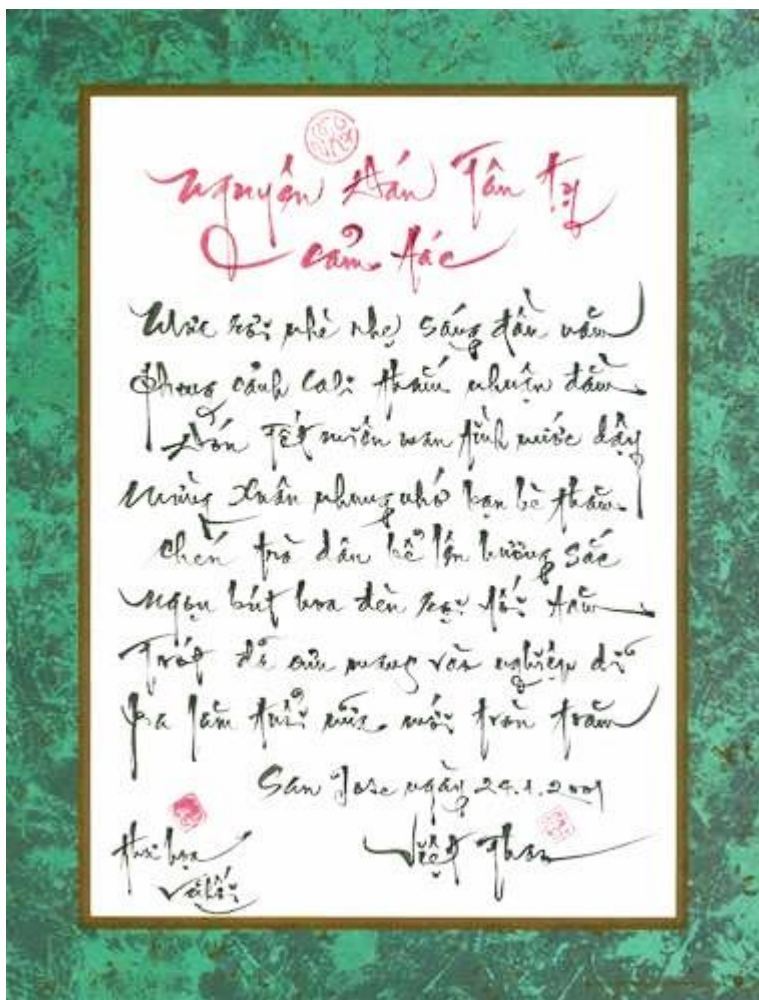 Nguyên Đán Tân Tỵ
cảm tác
Mưa rơi nhè nhẹ sáng đầu năm
Phong cảnh Cali thấm nhuận đầm
Đón Tết miên man tình nước dậy
Mừng Xuân nhung nhớ bạn bè thăm
Chén trà dâng bể lên hương sắc
Ngọn bút hoa đèn rọi tối tăm
Trót đã mang vào nghiệp dĩ
Ba lăm tuổi nữa mới tròn trăm
San Jose ngày 24.1.2001
thư họa
Vũ Hối